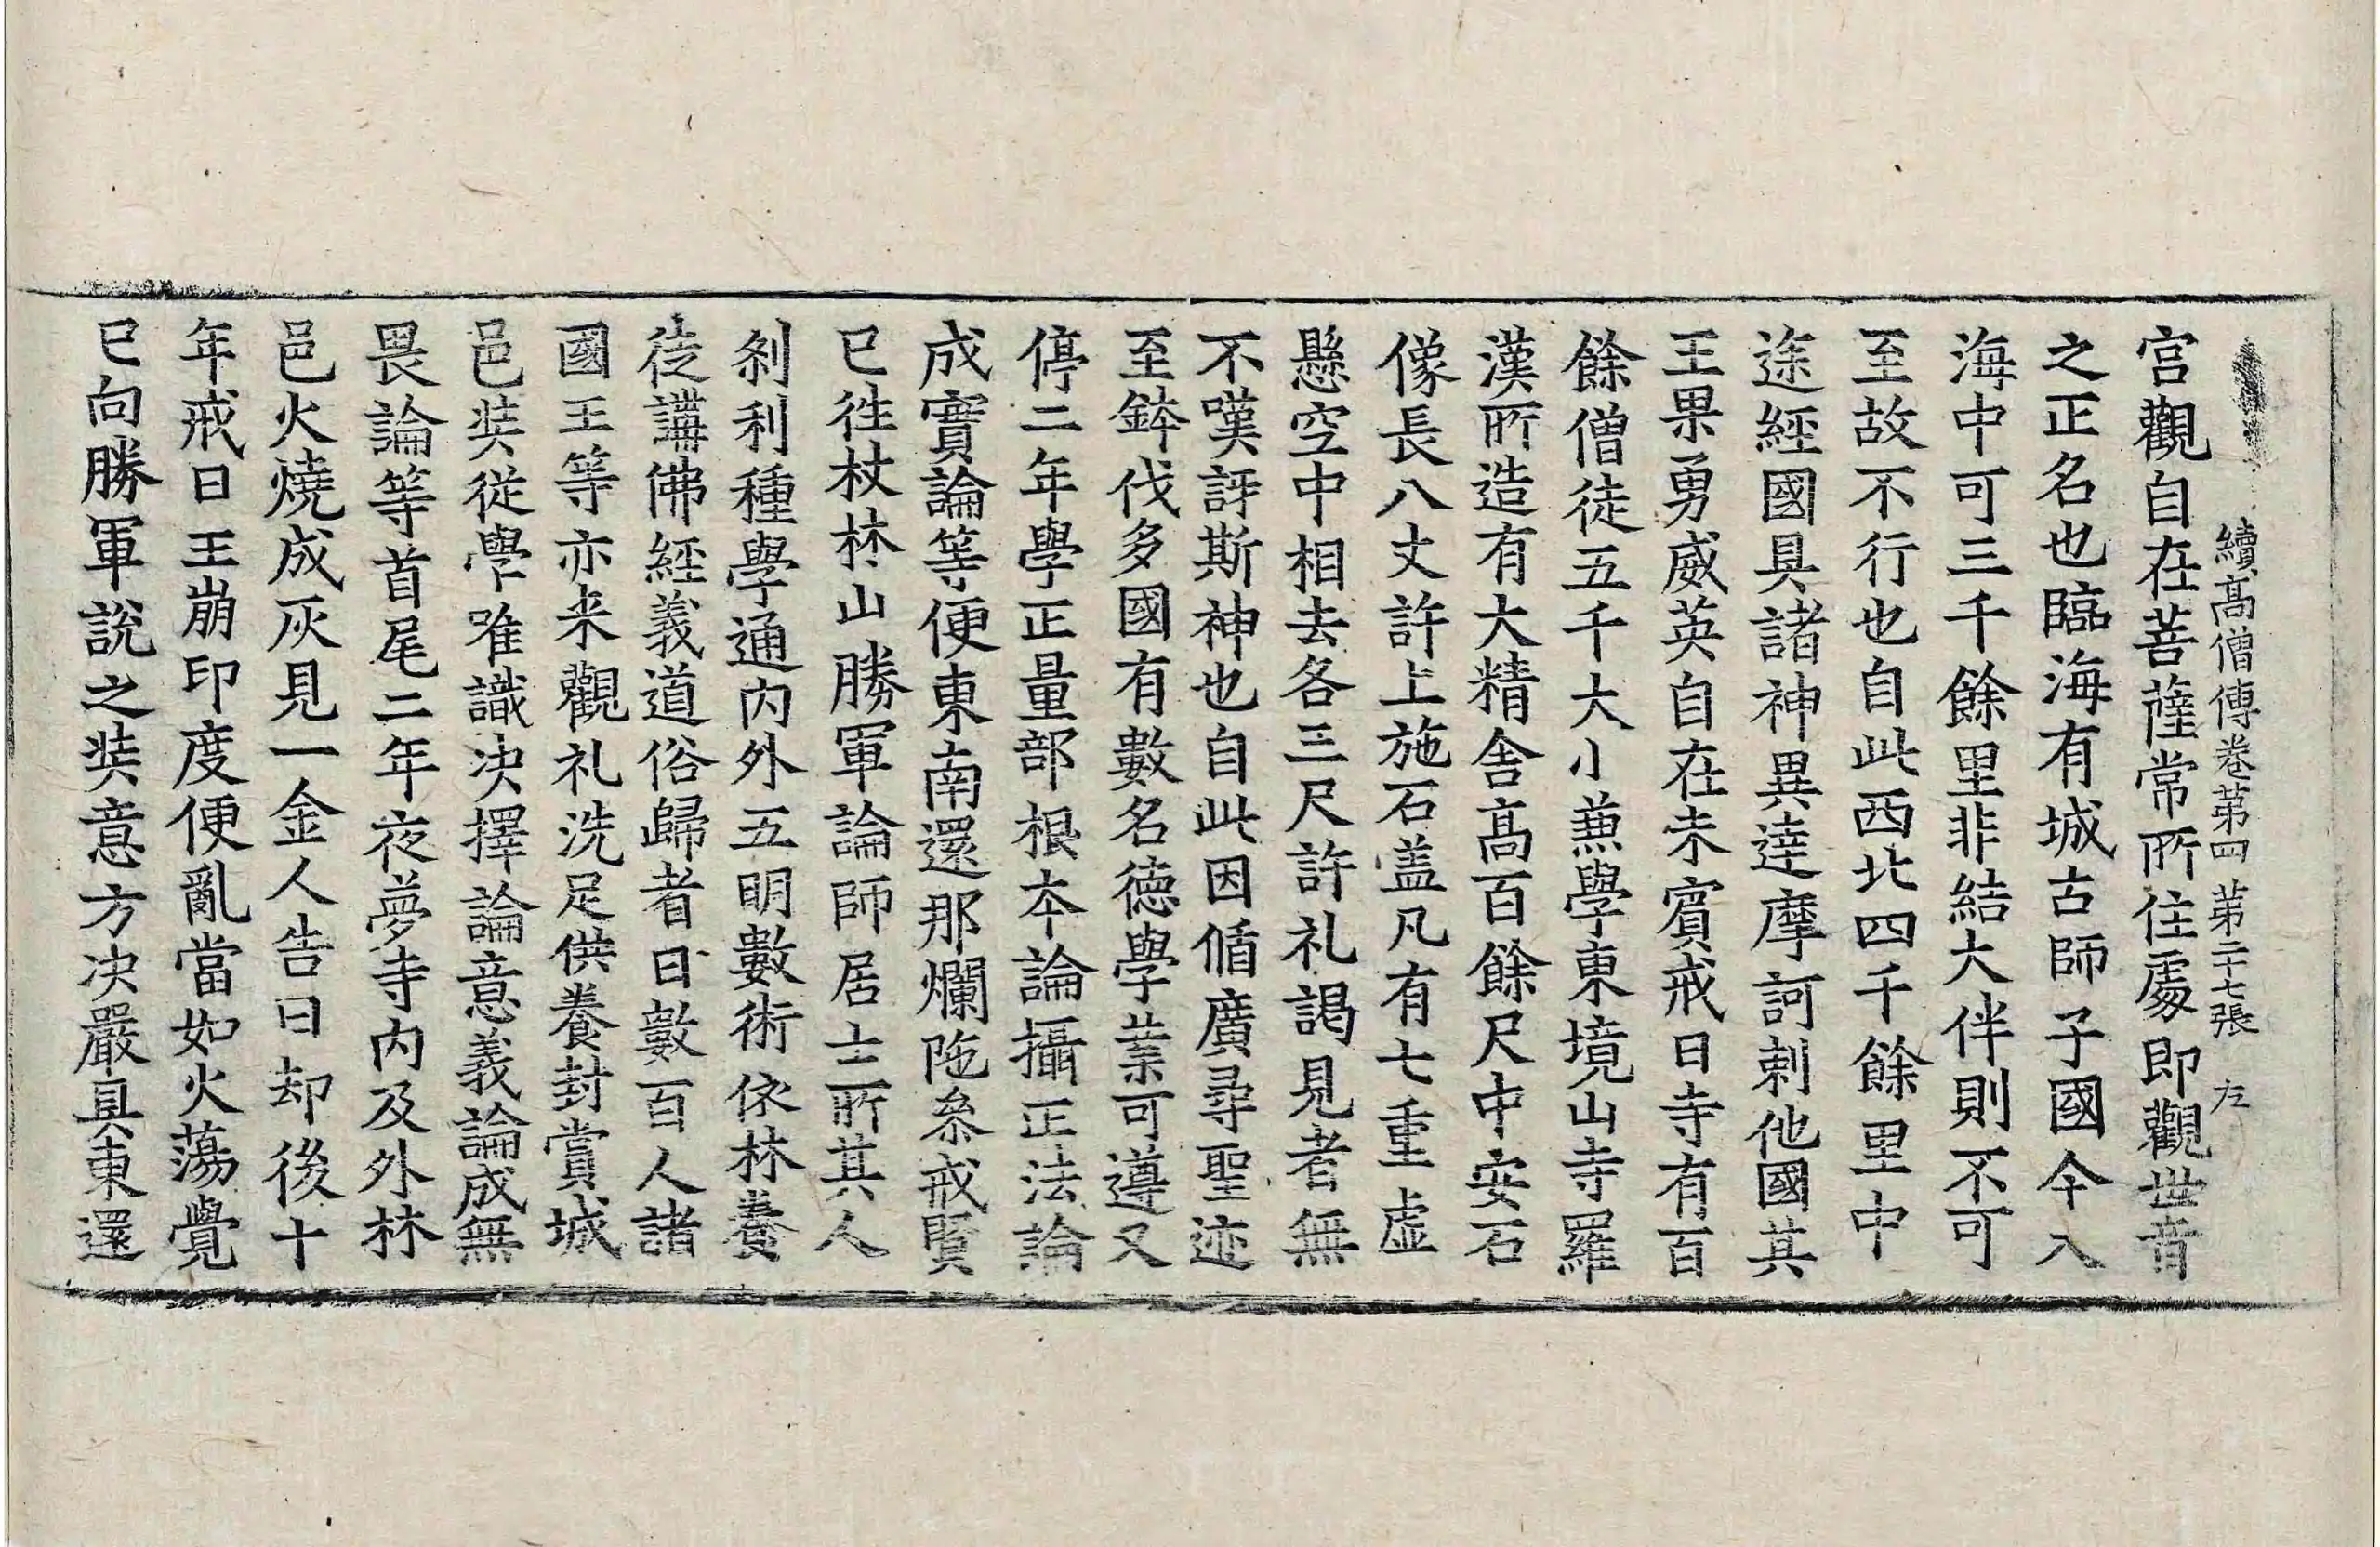 續高僧傳卷第四　第二十七張　左
宫觀自在菩薩常所住處即觀世音
之正名也臨海有城古師子國今入
海中可三千餘里非結大伴則不可
至故不行也自此西北四千餘里中
途經國具諸神異達摩訶剌他國其
王果勇威英自在未賓戒日寺有百
餘僧徒五千大小兼學東境山寺羅
漢所造有大精舍高百餘尺中安石
像長八丈許上施石盖凡有七重虛
懸空中相去各三尺許礼謁見者無
不嘆訝斯神也自此因循廣尋聖迹
至鉢伐多國有數名德學業可遵又
停二年學正量部根本論攝正法論
成實論等便東南還那爛陁叅戒賢
已徃杖林山勝軍論師居士所其人
刹利種學通內外五明數術依林養
徒講佛經義道俗歸者日數百人諸
國王等亦来觀礼洗足供養封賞城
邑奘從學唯識决擇論意義論成無
畏論等首尾二年夜夢寺內及外林
邑火燒成灰見一金人告曰却後十
年戒日王崩印度便亂當如火蕩覺
已向勝軍說之奘意方决嚴具東還